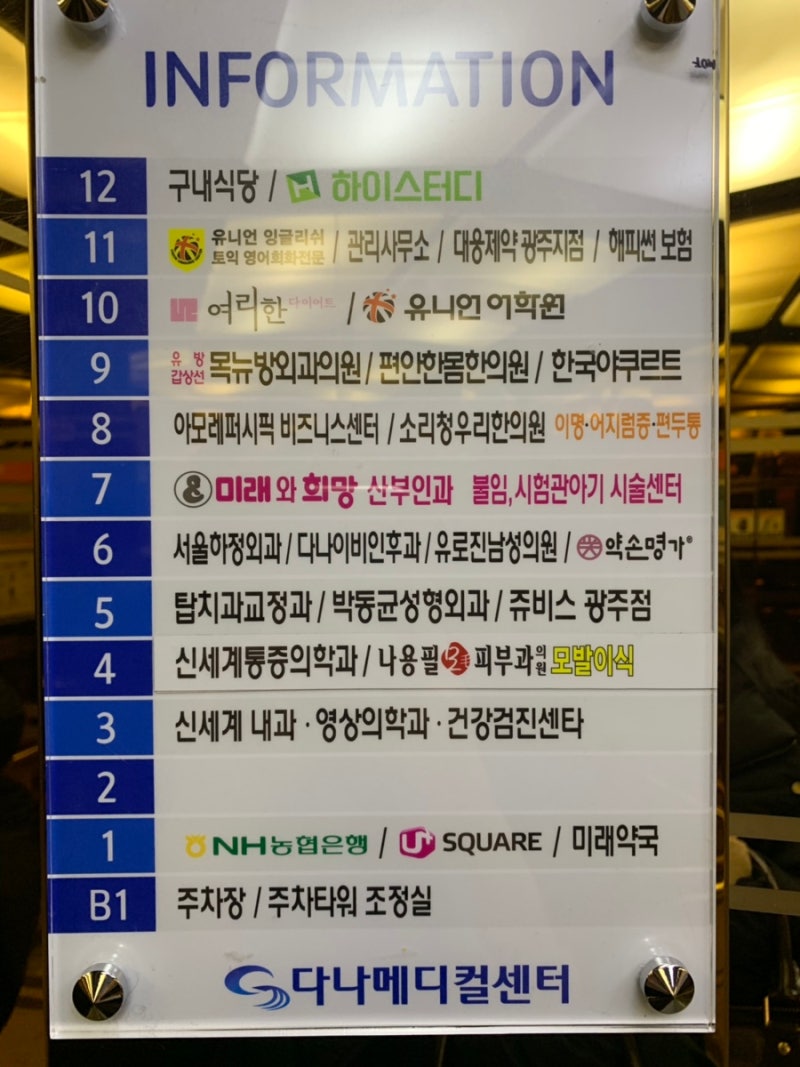 INFORMATION
12 구내식당 / H 하이스터디
11 유니언 잉글리쉬 토익 영어회화전문 / 관리사무소 / 대웅제약 광주지점 / 해피썬 보험
10 여리한 다이어트 / 유니언 어학원
9 유방 갑상선 목뉴방외과의원 / 편안한몸한의원 / 한국야쿠르트
8 아모레퍼시픽 비즈니스센터 / 소리청우리한의원 이명·어지럼증·편두통
7 & 미래와희망 산부인과 불임,시험관아기 시술센터
6 서울하정외과 / 다나이비인후과 / 유로진남성의원 / 약손명가®
5 탑치과교정과 / 박동균성형외과 / 쥬비스 광주점
4 신세계통증의학과 / 나용필 피부과의원 모발이식
3 신세계 내과 · 영상의학과 · 건강검진센타
2
1 NH농협은행 / U+ SQUARE / 미래약국
B1 주차장 / 주차타워 조정실
다나메디컬센터